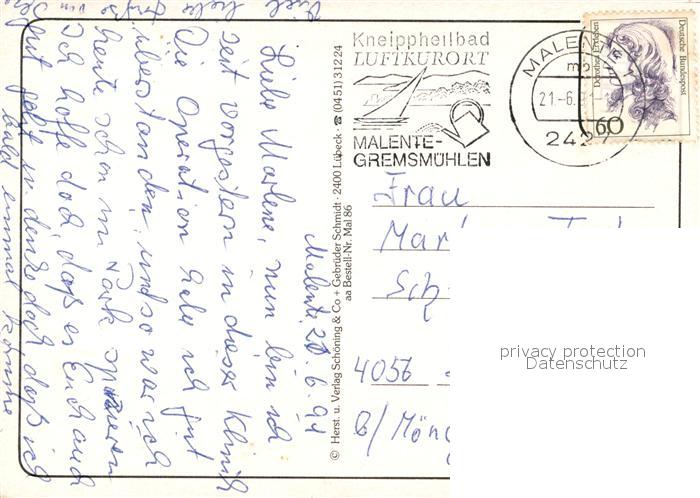 Kneippheilbad
LUFTKURORT
MALENTE-
GREMSMÜHLEN
MALENTE
21.-6.
242
Deutsche Bundespost
Dorothea Erxleben
60
Malente 20.6.91
Liebe Marlene, nun bin ich
seit vorgestern in dieser Klinik
Die Operation habe ich gut
überstanden, und so war ich
heute schon im Park spazieren
Ich hoffe doch, daß es Euch auch
gut geht u. denke doch, daß ich
bald einmal komme.
© Herst. u. Verlag Schöning & Co + Gebrüder Schmidt · 2400 Lübeck · ☎ (0451) 31224
aa Bestell-Nr. Mal 86
Frau
Mar
Sch
4056
B/Mönc
privacy protection
Datenschutz